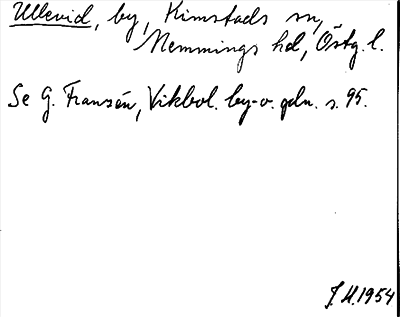 Ullevid, by, Kimstads sn,
Memmings hd, Östg. l.
Se G. Fransén, Vikbol. by- o. gdn. s. 95.
J. H. 1954